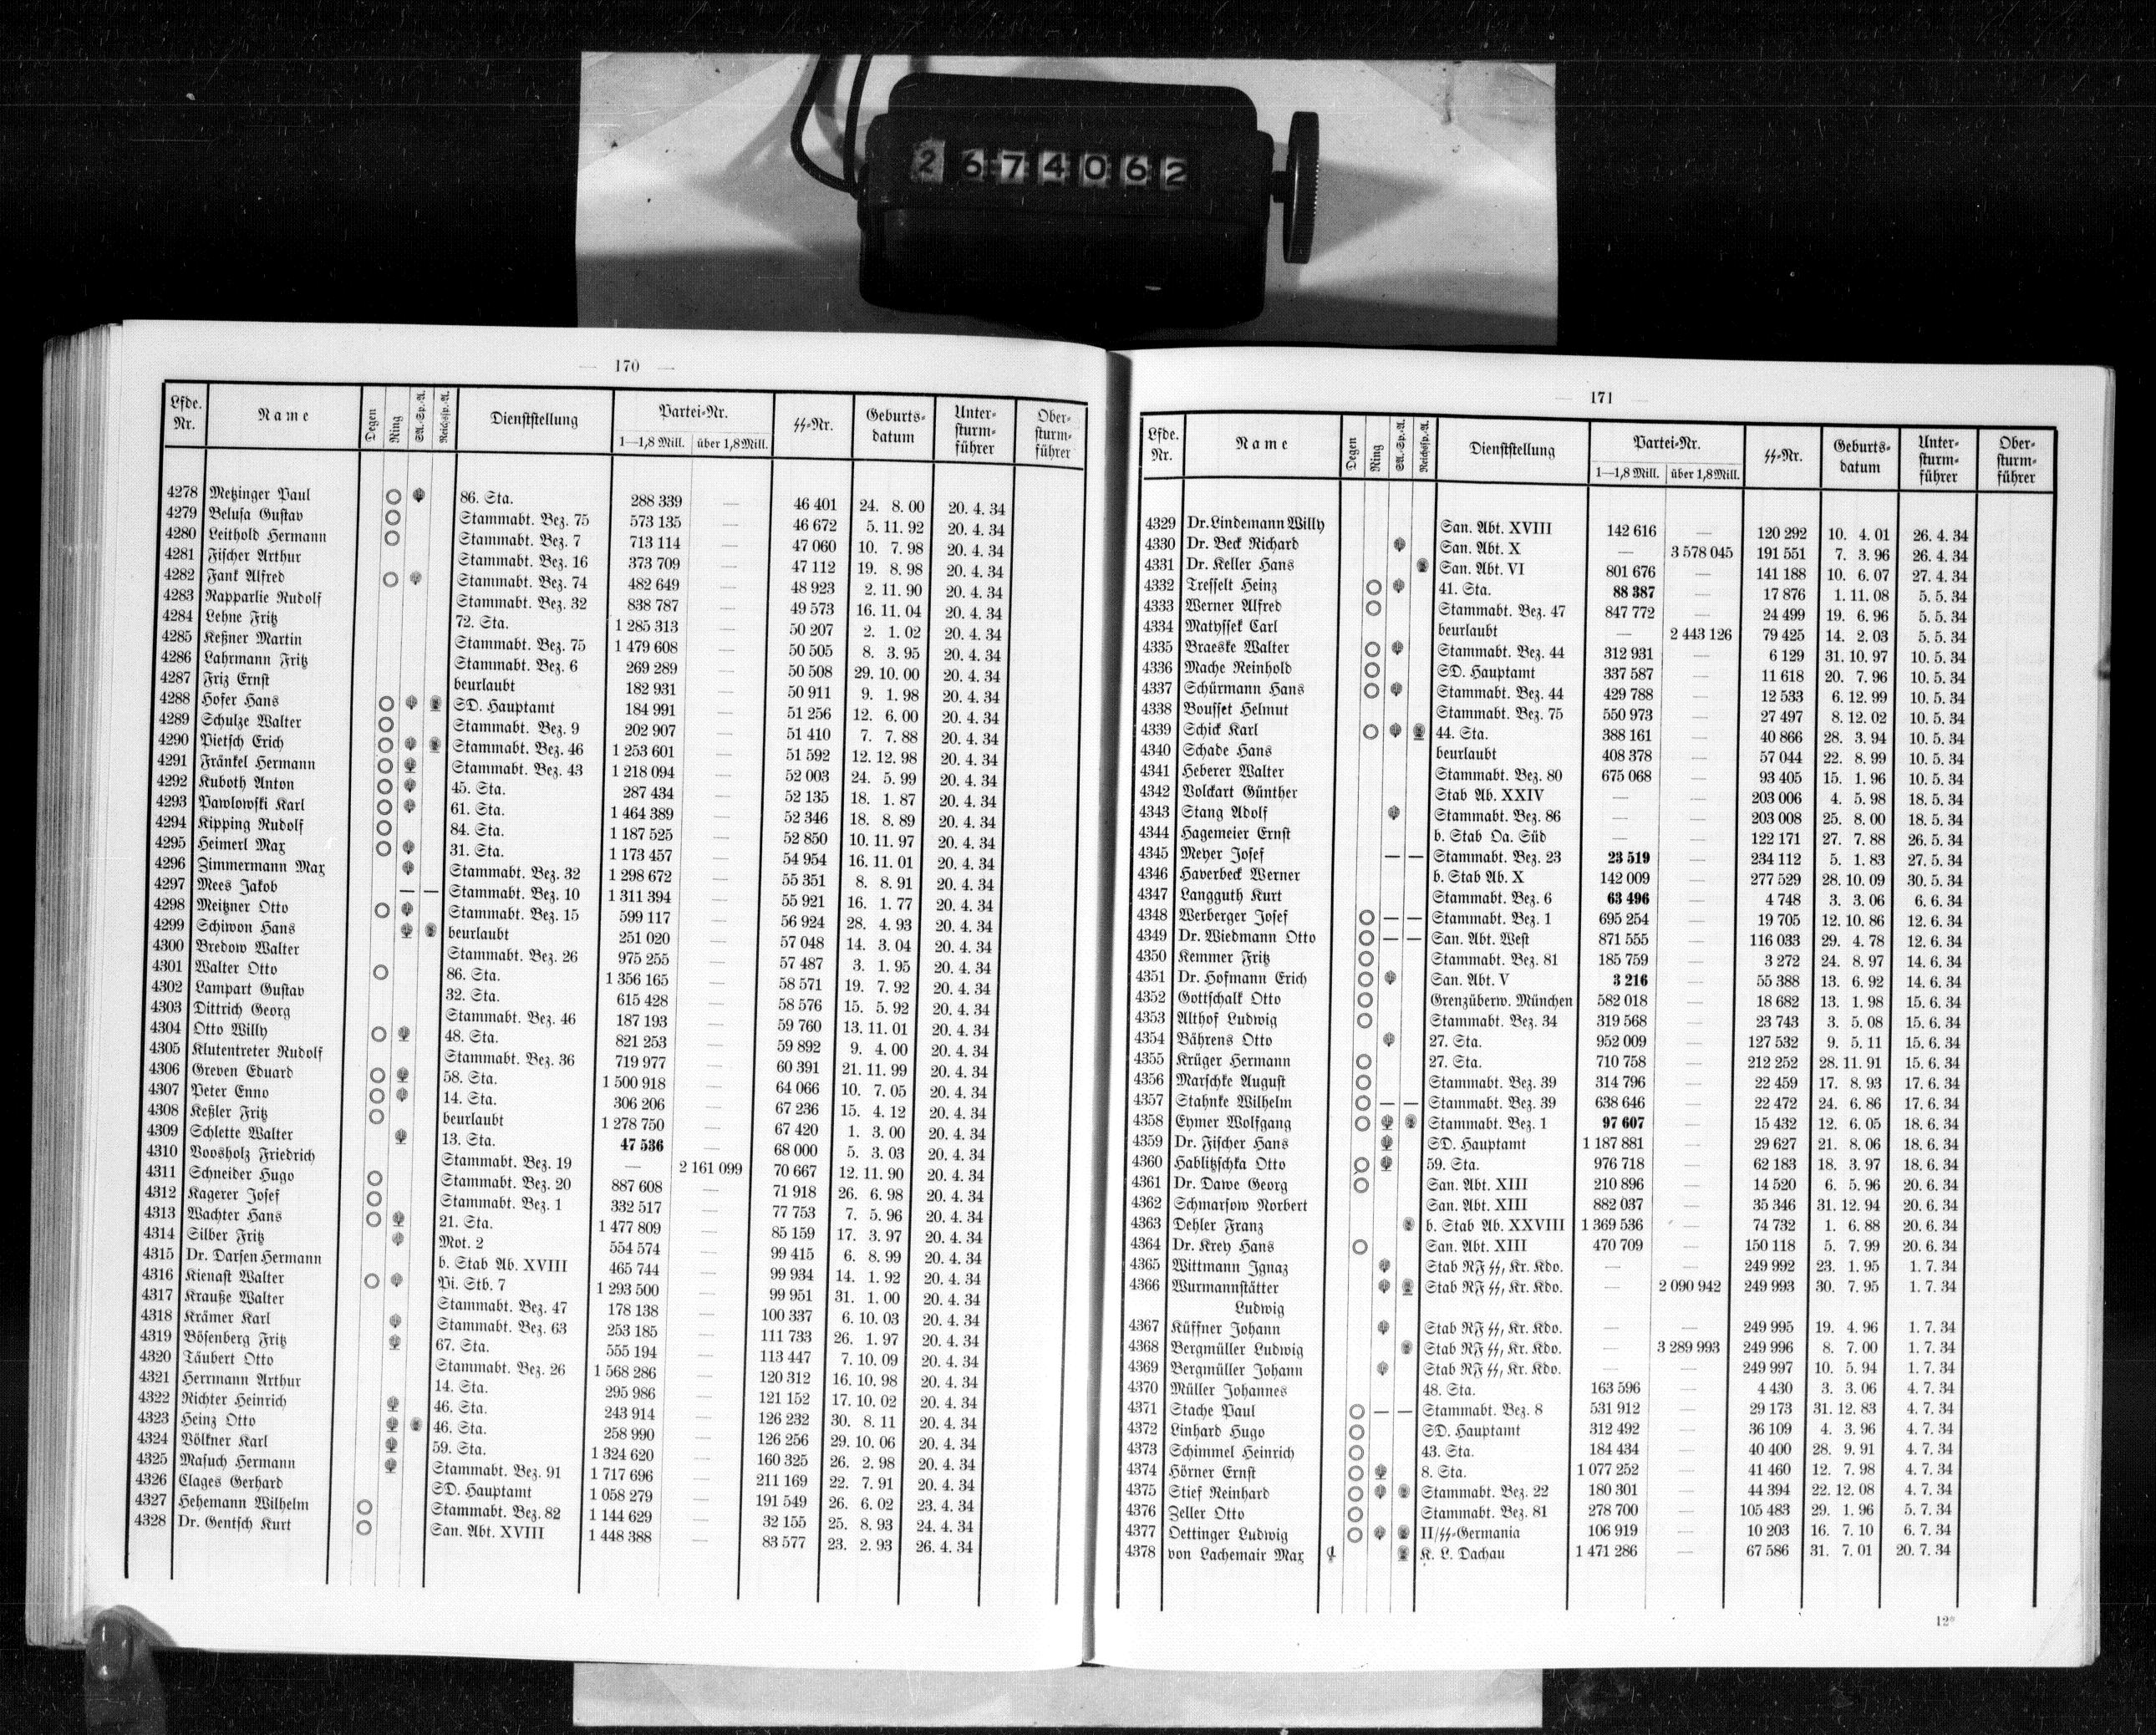 2674062
— 170 —
Lfde. Nr. | Name | Degen | Ring | SA.-Sp.-A. | Reichssp.-A. | Dienststellung | Partei-Nr. 1—1,8 Mill. | über 1,8 Mill. | SS-Nr. | Geburtsdatum | Untersturmführer | Obersturmführer
4278 Metzinger Paul 86. Sta. 288 339 — 46 401 24. 8. 00 20. 4. 34
4279 Belusa Gustav Stammabt. Bez. 75 573 135 — 46 672 5. 11. 92 20. 4. 34
4280 Leithold Hermann Stammabt. Bez. 7 713 114 — 47 060 10. 7. 98 20. 4. 34
4281 Fischer Arthur Stammabt. Bez. 16 373 709 — 47 112 19. 8. 98 20. 4. 34
4282 Fank Alfred Stammabt. Bez. 74 482 649 — 48 923 2. 11. 90 20. 4. 34
4283 Rapparlie Rudolf Stammabt. Bez. 32 838 787 — 49 573 16. 11. 04 20. 4. 34
4284 Lehne Fritz 72. Sta. 1 285 313 — 50 207 2. 1. 02 20. 4. 34
4285 Keßner Martin Stammabt. Bez. 75 1 479 608 — 50 505 8. 3. 95 20. 4. 34
4286 Lahrmann Fritz Stammabt. Bez. 6 269 289 — 50 508 29. 10. 00 20. 4. 34
4287 Friz Ernst beurlaubt 182 931 — 50 911 9. 1. 98 20. 4. 34
4288 Hofer Hans SD. Hauptamt 184 991 — 51 256 12. 6. 00 20. 4. 34
4289 Schulze Walter Stammabt. Bez. 9 202 907 — 51 410 7. 7. 88 20. 4. 34
4290 Pietsch Erich Stammabt. Bez. 46 1 253 601 — 51 592 12. 12. 98 20. 4. 34
4291 Fränkel Hermann Stammabt. Bez. 43 1 218 094 — 52 003 24. 5. 99 20. 4. 34
4292 Kuboth Anton 45. Sta. 287 434 — 52 135 18. 1. 87 20. 4. 34
4293 Pawlowski Karl 61. Sta. 1 464 389 — 52 346 18. 8. 89 20. 4. 34
4294 Kipping Rudolf 84. Sta. 1 187 525 — 52 850 10. 11. 97 20. 4. 34
4295 Heimerl Max 31. Sta. 1 173 457 — 54 954 16. 11. 01 20. 4. 34
4296 Zimmermann Max Stammabt. Bez. 32 1 298 672 — 55 351 8. 8. 91 20. 4. 34
4297 Mees Jakob — — Stammabt. Bez. 10 1 311 394 — 55 921 16. 1. 77 20. 4. 34
4298 Meitzner Otto Stammabt. Bez. 15 599 117 — 56 924 28. 4. 93 20. 4. 34
4299 Schiwon Hans beurlaubt 251 020 — 57 048 14. 3. 04 20. 4. 34
4300 Bredow Walter Stammabt. Bez. 26 975 255 — 57 487 3. 1. 95 20. 4. 34
4301 Walter Otto 86. Sta. 1 356 165 — 58 571 19. 7. 92 20. 4. 34
4302 Lampart Gustav 32. Sta. 615 428 — 58 576 15. 5. 92 20. 4. 34
4303 Dittrich Georg Stammabt. Bez. 46 187 193 — 59 760 13. 11. 01 20. 4. 34
4304 Otto Willy 48. Sta. 821 253 — 59 892 9. 4. 00 20. 4. 34
4305 Klutentreter Rudolf Stammabt. Bez. 36 719 977 — 60 391 21. 11. 99 20. 4. 34
4306 Greven Eduard 58. Sta. 1 500 918 — 64 066 10. 7. 05 20. 4. 34
4307 Peter Enno 14. Sta. 306 206 — 67 236 15. 4. 12 20. 4. 34
4308 Keßler Fritz beurlaubt 1 278 750 — 67 420 1. 3. 00 20. 4. 34
4309 Schlette Walter 13. Sta. 47 536 — 68 000 5. 3. 03 20. 4. 34
4310 Voosholz Friedrich Stammabt. Bez. 19 — 2 161 099 70 667 12. 11. 90 20. 4. 34
4311 Schneider Hugo Stammabt. Bez. 20 887 608 — 71 918 26. 6. 98 20. 4. 34
4312 Kagerer Josef Stammabt. Bez. 1 332 517 — 77 753 7. 5. 96 20. 4. 34
4313 Wachter Hans 21. Sta. 1 477 809 — 85 159 17. 3. 97 20. 4. 34
4314 Silber Fritz Mot. 2 554 574 — 99 415 6. 8. 99 20. 4. 34
4315 Dr. Darsen Hermann b. Stab Ab. XVIII 465 744 — 99 934 14. 1. 92 20. 4. 34
4316 Kienast Walter Pi. Stb. 7 1 293 500 — 99 951 31. 1. 00 20. 4. 34
4317 Krauße Walter Stammabt. Bez. 47 178 138 — 100 337 6. 10. 03 20. 4. 34
4318 Krämer Karl Stammabt. Bez. 63 253 185 — 111 733 26. 1. 97 20. 4. 34
4319 Bösenberg Fritz 67. Sta. 555 194 — 113 447 7. 10. 09 20. 4. 34
4320 Täubert Otto Stammabt. Bez. 26 1 568 286 — 120 312 16. 10. 98 20. 4. 34
4321 Herrmann Arthur 14. Sta. 295 986 — 121 152 17. 10. 02 20. 4. 34
4322 Richter Heinrich 46. Sta. 243 914 — 126 232 30. 8. 11 20. 4. 34
4323 Heinz Otto 46. Sta. 258 990 — 126 256 29. 10. 06 20. 4. 34
4324 Völkner Karl 59. Sta. 1 324 620 — 160 325 26. 2. 98 20. 4. 34
4325 Masuch Hermann Stammabt. Bez. 91 1 717 696 — 211 169 22. 7. 91 20. 4. 34
4326 Clages Gerhard SD. Hauptamt 1 058 279 — 191 549 26. 6. 02 23. 4. 34
4327 Hehemann Wilhelm Stammabt. Bez. 82 1 144 629 — 32 155 25. 8. 93 24. 4. 34
4328 Dr. Gentsch Kurt San. Abt. XVIII 1 448 388 — 83 577 23. 2. 93 26. 4. 34
— 171 —
Lfde. Nr. | Name | Degen | Ring | SA.-Sp.-A. | Reichssp.-A. | Dienststellung | Partei-Nr. 1—1,8 Mill. | über 1,8 Mill. | SS-Nr. | Geburtsdatum | Untersturmführer | Obersturmführer
4329 Dr. Lindemann Willy San. Abt. XVIII 142 616 — 120 292 10. 4. 01 26. 4. 34
4330 Dr. Beck Richard San. Abt. X — 3 578 045 191 551 7. 3. 96 26. 4. 34
4331 Dr. Keller Hans San. Abt. VI 801 676 — 141 188 10. 6. 07 27. 4. 34
4332 Tresselt Heinz 41. Sta. 88 387 — 17 876 1. 11. 08 5. 5. 34
4333 Werner Alfred Stammabt. Bez. 47 847 772 — 24 499 19. 6. 96 5. 5. 34
4334 Matyssek Carl beurlaubt — 2 443 126 79 425 14. 2. 03 5. 5. 34
4335 Braeske Walter Stammabt. Bez. 44 312 931 — 6 129 31. 10. 97 10. 5. 34
4336 Mache Reinhold SD. Hauptamt 337 587 — 11 618 20. 7. 96 10. 5. 34
4337 Schürmann Hans Stammabt. Bez. 44 429 788 — 12 533 6. 12. 99 10. 5. 34
4338 Bousset Helmut Stammabt. Bez. 75 550 973 — 27 497 8. 12. 02 10. 5. 34
4339 Schick Karl 44. Sta. 388 161 — 40 866 28. 3. 94 10. 5. 34
4340 Schade Hans beurlaubt 408 378 — 57 044 22. 8. 99 10. 5. 34
4341 Heberer Walter Stammabt. Bez. 80 675 068 — 93 405 15. 1. 96 10. 5. 34
4342 Volckart Günther Stab Ab. XXIV — — 203 006 4. 5. 98 18. 5. 34
4343 Stang Adolf Stammabt. Bez. 86 — — 203 008 25. 8. 00 18. 5. 34
4344 Hagemeier Ernst b. Stab Oa. Süd — — 122 171 27. 7. 88 26. 5. 34
4345 Meyer Josef — — Stammabt. Bez. 23 23 519 — 234 112 5. 1. 83 27. 5. 34
4346 Haverbeck Werner b. Stab Ab. X 142 009 — 277 529 28. 10. 09 30. 5. 34
4347 Langguth Kurt Stammabt. Bez. 6 63 496 — 4 748 3. 3. 06 6. 6. 34
4348 Werberger Josef — — Stammabt. Bez. 1 695 254 — 19 705 12. 10. 86 12. 6. 34
4349 Dr. Wiedmann Otto — — San. Abt. West 871 555 — 116 033 29. 4. 78 12. 6. 34
4350 Kemmer Fritz Stammabt. Bez. 81 185 759 — 3 272 24. 8. 97 14. 6. 34
4351 Dr. Hofmann Erich San. Abt. V 3 216 — 55 388 13. 6. 92 14. 6. 34
4352 Gottschalk Otto Grenzüberw. München 582 018 — 18 682 13. 1. 98 15. 6. 34
4353 Althof Ludwig Stammabt. Bez. 34 319 568 — 23 743 3. 5. 08 15. 6. 34
4354 Bährens Otto 27. Sta. 952 009 — 127 532 9. 5. 11 15. 6. 34
4355 Krüger Hermann 27. Sta. 710 758 — 212 252 28. 11. 91 15. 6. 34
4356 Marschke August Stammabt. Bez. 39 314 796 — 22 459 17. 8. 93 17. 6. 34
4357 Stahnke Wilhelm — — Stammabt. Bez. 39 638 646 — 22 472 24. 6. 86 17. 6. 34
4358 Eymer Wolfgang Stammabt. Bez. 1 97 607 — 15 432 12. 6. 05 18. 6. 34
4359 Dr. Fischer Hans SD. Hauptamt 1 187 881 — 29 627 21. 8. 06 18. 6. 34
4360 Hablitzschka Otto 59. Sta. 976 718 — 62 183 18. 3. 97 18. 6. 34
4361 Dr. Dawe Georg San. Abt. XIII 210 896 — 14 520 6. 5. 96 20. 6. 34
4362 Schmarsow Norbert San. Abt. XIII 882 037 — 35 346 31. 12. 94 20. 6. 34
4363 Dehler Franz b. Stab Ab. XXVIII 1 369 536 — 74 732 1. 6. 88 20. 6. 34
4364 Dr. Krey Hans San. Abt. XIII 470 709 — 150 118 5. 7. 99 20. 6. 34
4365 Wittmann Ignaz Stab RFSS, Kr. Kdo. — — 249 992 23. 1. 95 1. 7. 34
4366 Wurmannstätter Stab RFSS, Kr. Kdo. — 2 090 942 249 993 30. 7. 95 1. 7. 34
Ludwig
4367 Küffner Johann Stab RFSS, Kr. Kdo. — — 249 995 19. 4. 96 1. 7. 34
4368 Bergmüller Ludwig Stab RFSS, Kr. Kdo. — 3 289 993 249 996 8. 7. 00 1. 7. 34
4369 Bergmüller Johann Stab RFSS, Kr. Kdo. — — 249 997 10. 5. 94 1. 7. 34
4370 Müller Johannes 48. Sta. 163 596 — 4 430 3. 3. 06 4. 7. 34
4371 Stache Paul — — Stammabt. Bez. 8 531 912 — 29 173 31. 12. 83 4. 7. 34
4372 Linhard Hugo SD. Hauptamt 312 492 — 36 109 4. 3. 96 4. 7. 34
4373 Schimmel Heinrich 43. Sta. 184 434 — 40 400 28. 9. 91 4. 7. 34
4374 Hörner Ernst 8. Sta. 1 077 252 — 41 460 12. 7. 98 4. 7. 34
4375 Stief Reinhard Stammabt. Bez. 22 180 301 — 44 394 22. 12. 08 4. 7. 34
4376 Zeller Otto Stammabt. Bez. 81 278 700 — 105 483 29. 1. 96 5. 7. 34
4377 Oettinger Ludwig II/SS-Germania 106 919 — 10 203 16. 7. 10 6. 7. 34
4378 von Lachemair Max K. L. Dachau 1 471 286 — 67 586 31. 7. 01 20. 7. 34
12*